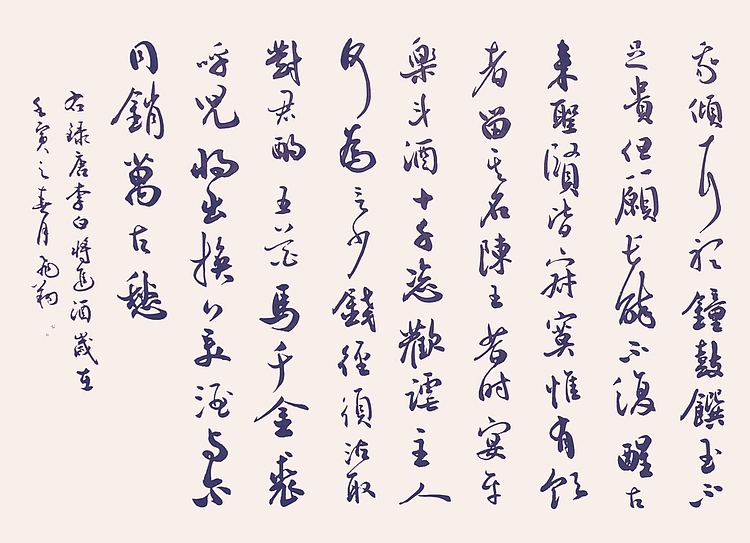 我傾耳聽鐘鼓饌玉不
足貴但願長醉不復醒古
來聖賢皆寂寞惟有飲
者留其名陳王昔時宴平
樂斗酒十千恣歡謔主人
何為言少錢徑須沽取
對君酌五花馬千金裘
呼兒將出換美酒與爾
同銷萬古愁
右録唐李白將進酒歲在
壬寅之春月飛翔